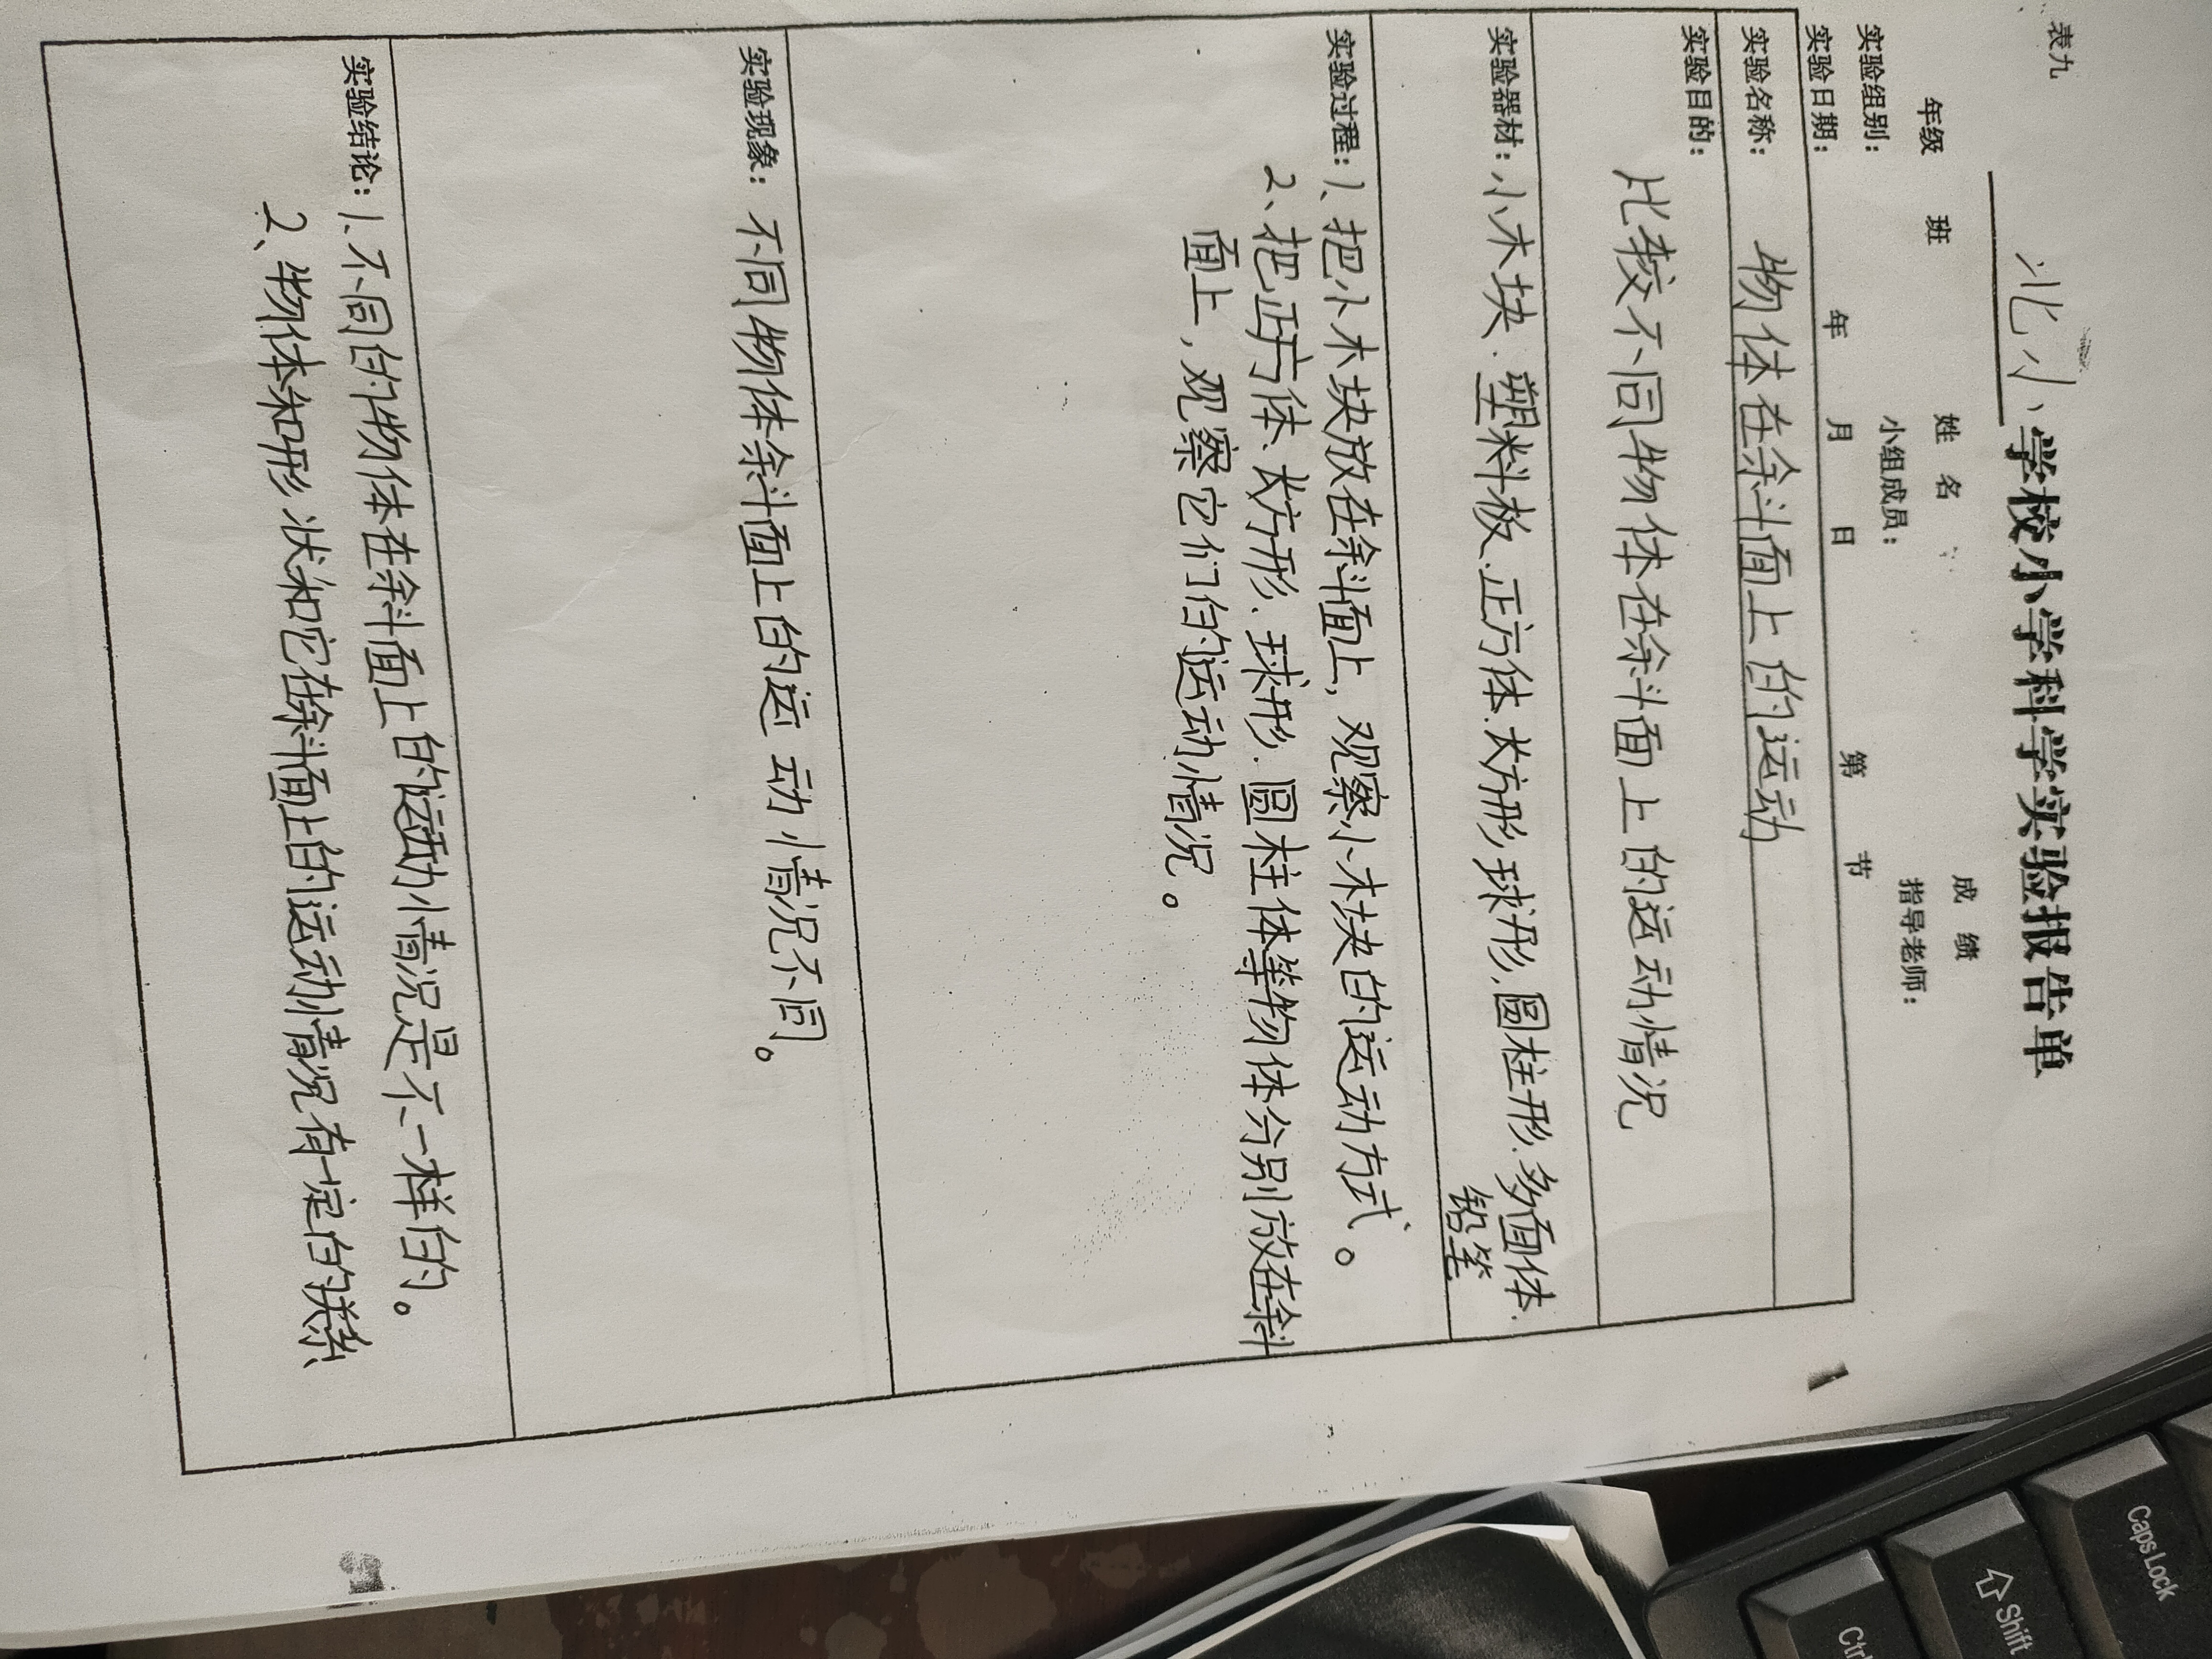 表九
北小学校小学科学实验报告单
年级 班 姓 名 成 绩
实验组别： 小组成员： 指导老师：
实验日期： 年 月 日 第 节
实验名称： 物体在斜面上的运动
实验目的：
比较不同物体在斜面上的运动情况
实验器材：小木块、塑料板、正方体、长方形、球形、圆柱形、多面体、
铅笔
实验过程：1、把小木块放在斜面上，观察小木块的运动方式。
2、把正方体、长方形、球形、圆柱体等物体分别放在斜
面上，观察它们的运动情况。
实验现象：不同物体斜面上的运动情况不同。
实验结论：1、不同的物体在斜面上的运动情况是不一样的。
2、物体和形状和它在斜面上的运动情况有一定的关系
Caps Lock
Shift
Ctrl